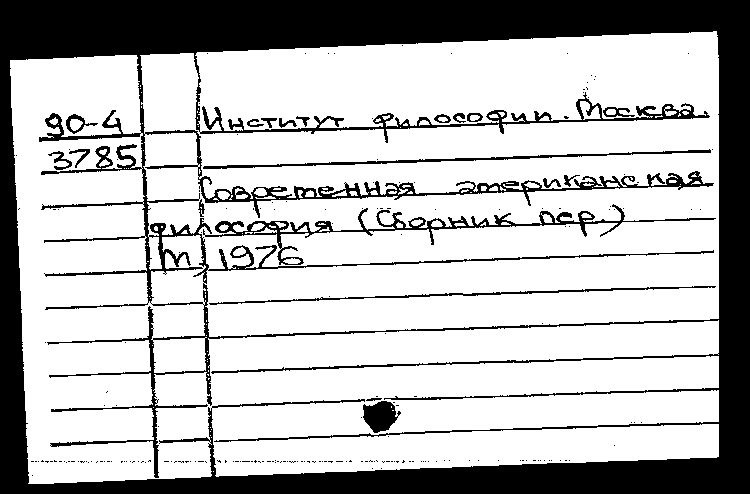 90-4 Институт философии. Москва.
3785
Современная американская
философия (Сборник пер.)
М, 1976